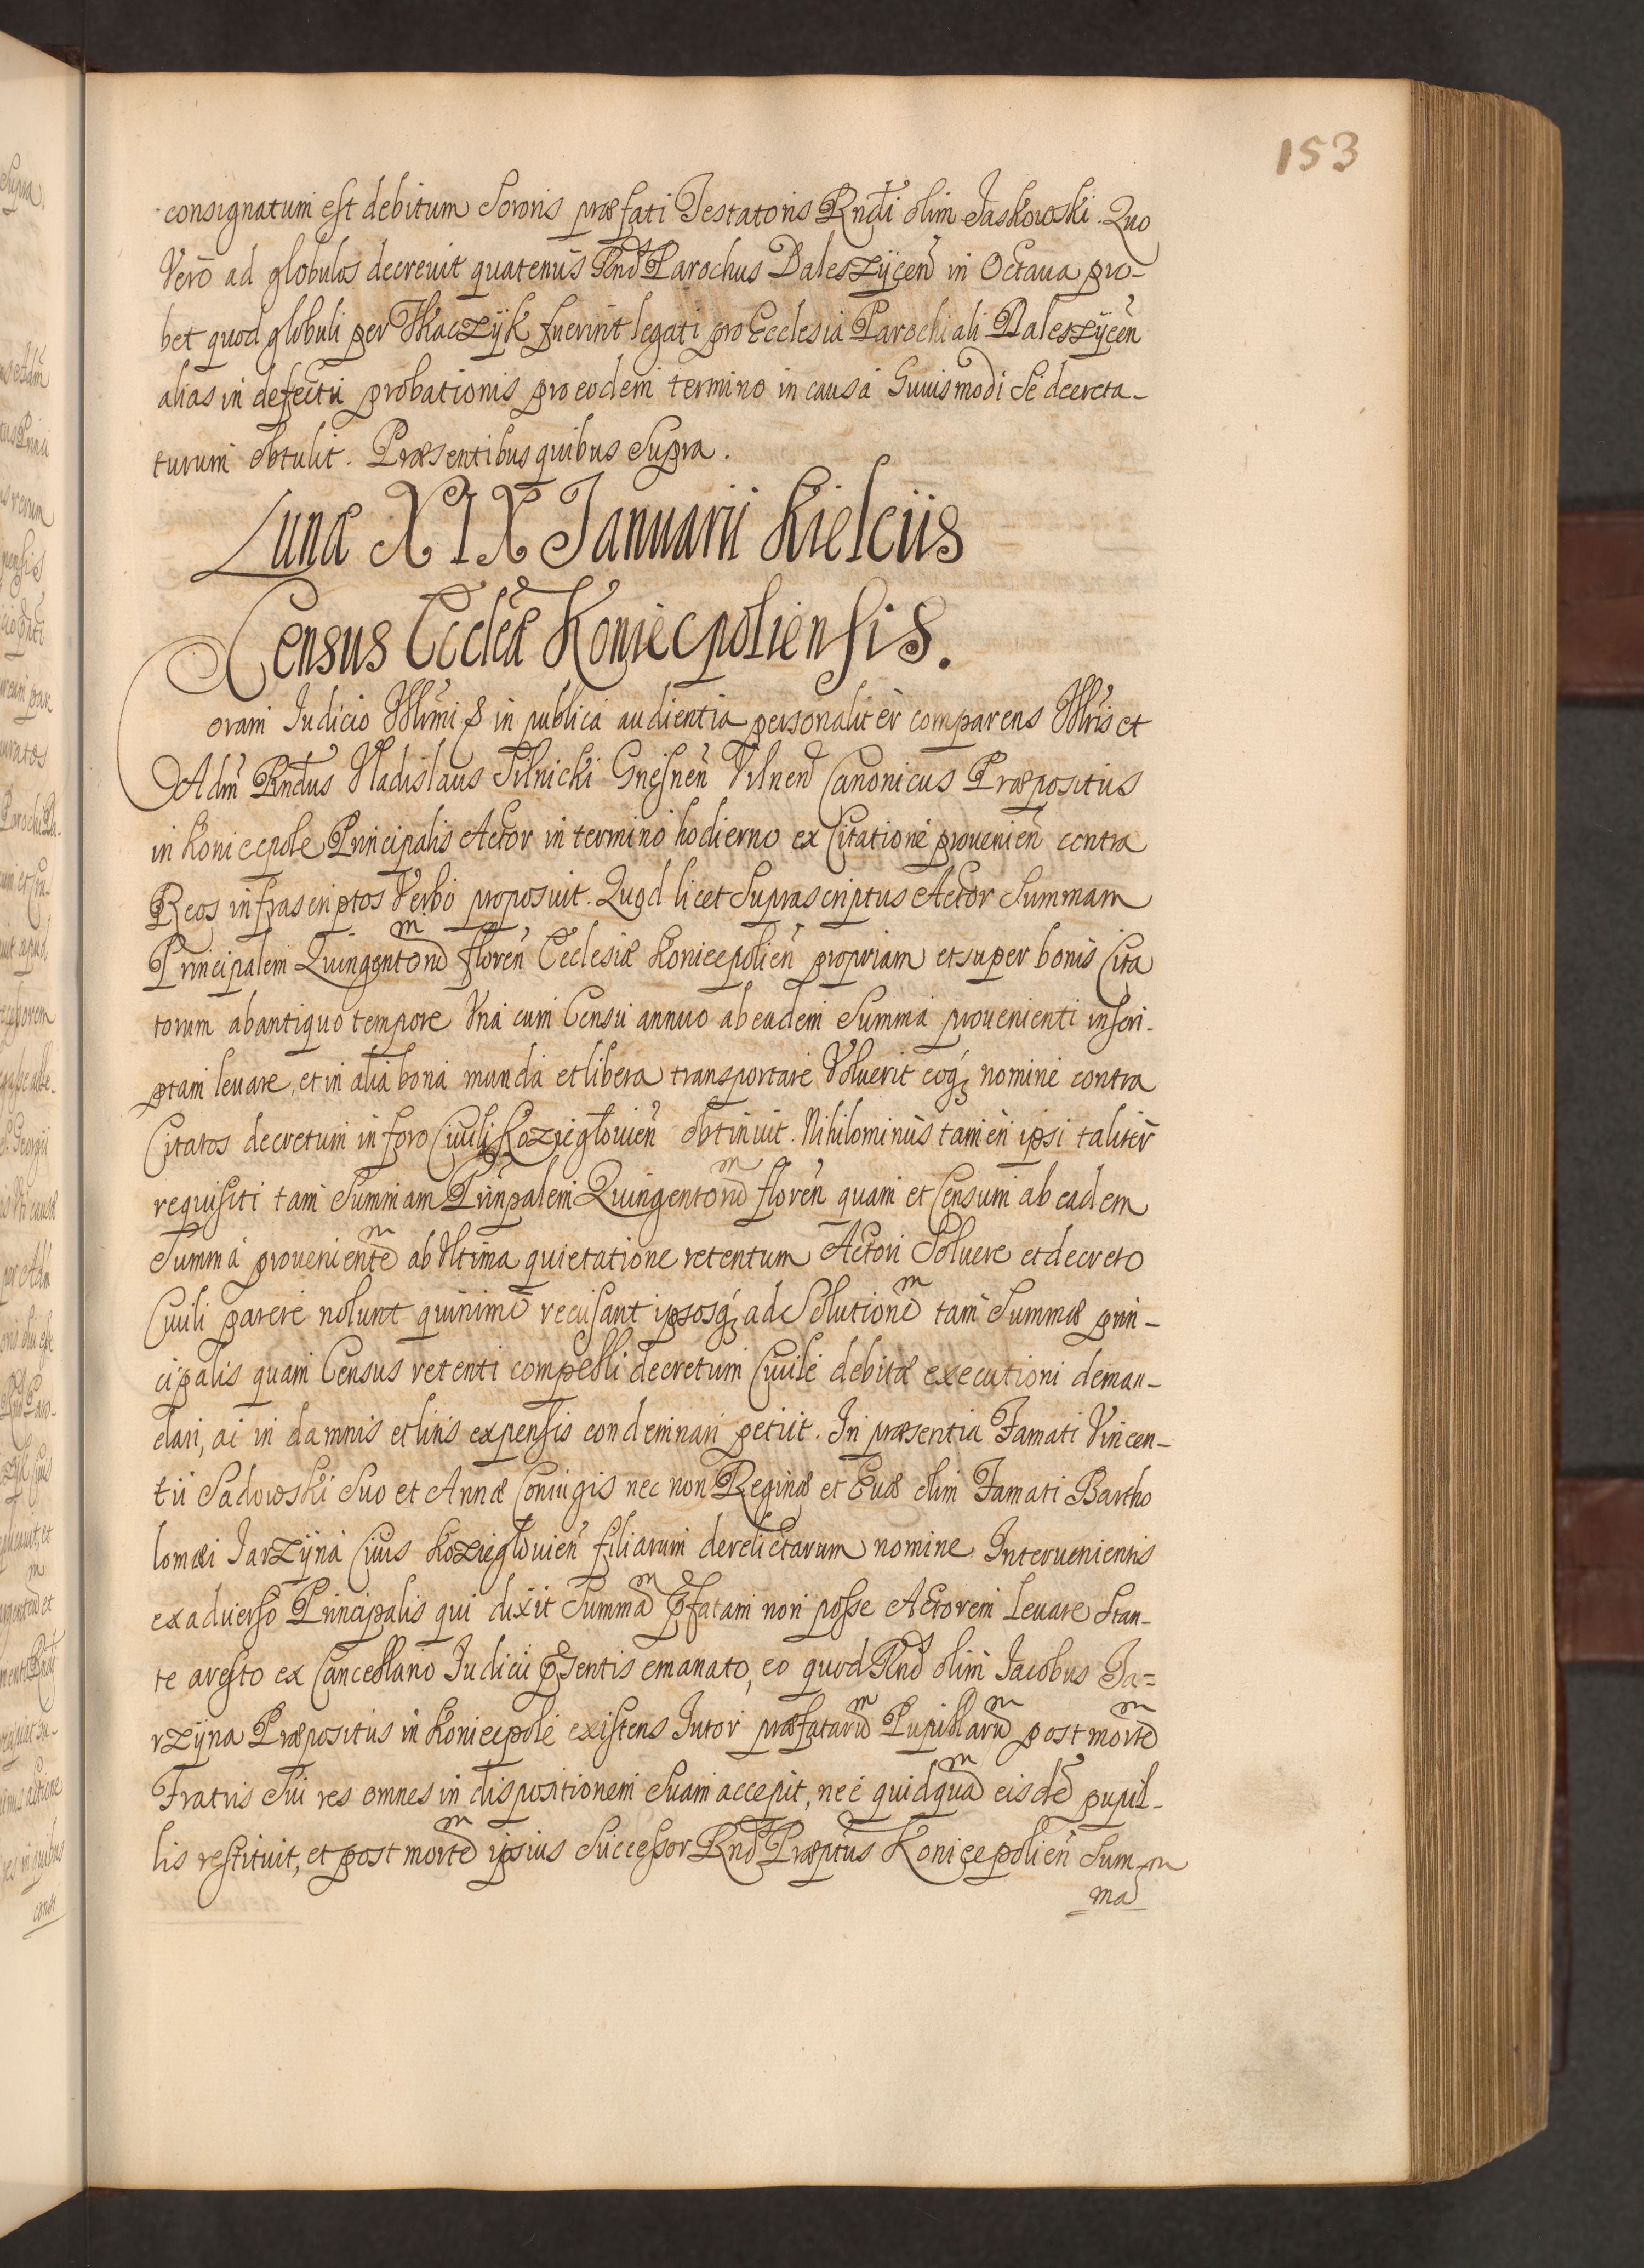 153
consignatum est debitum Sororis præfati Testatoris Rndi olim Jaskowski. Quo
Vero ad globulos decrevit quatenus Rnd Parochus Daleszÿcen in Octava pro-
bet quod globuli per Tkaczÿk fuerint legati pro Ecclesia Parochiali Daleszÿcen
alias in defectu probationis pro eodem termino in causa huiusmodi Se decreta-
turum obtulit. Præsentibus quibus Supra.
Lunæ XIX Januarii Kielciis
Census Eccleæ Koniecpoliensis.
Coram Judicio Illrmi & in publica audientia personaliter comparens Illris et
Adm Rndus Vladislaus Silnicki Gnesnen Vilnen Canonicus Præpositus
in Koniecpole Principalis Actor in termino hodierno ex Citatione provenien contra
Reos infrascriptos Verbo proposuit. Quod licet Suprascriptus Actor Summam
Principalem Quingentorum floren Ecclesiæ Koniecpolien propriam et super bonis Cita
torum ab antiquo tempore Una cum Censu annuo ab eadem Summa provenienti inscri-
ptam levare, et in alia bona munda et libera transportare Voluerit eoq nomine contra
Citatos decretum in foro Civili Koziegłovien obtinuit. Nihilominus tamen ipsi taliter
requisiti tam Summam Prinpalem Quingentorum floren quam et Censum ab eadem
Summa provenientem ab Ultima quietatione retentum Actori Solvere et decreto
Civili parere nolunt quinimo recusant ipsosq ad Solutionem tam Summæ prin-
cipalis quam Census retenti compelli decretum Civile debitæ executioni deman-
dari, ac in damnis et litis expensis condemnari petiit. In præsentia Famati Vincen-
tii Sadowski Suo et Annæ Coniugis nec non Reginæ et Evæ olim Famati Bartho
lomæi Jarzÿna Civis Koziegłovien filiarum derelictarum nomine Intervenientis
ex adverso Principalis qui dixit Summam Pfatam non posse Actorem Levare Stan-
te aresto ex Cancellario Judicii Psentis emanato, eo quod Rnd olim Jacobus Ja=
rzÿna Præpositus in Koniecpole existens Tutor præfatarum Pupillarum post mortem
Fratris Sui res omnes in dispositionem Suam accepit, nec quidquam eisdem pupil-
lis restituit, et post mortem ipsius Successor Rnd Præptus Koniecpolien Sum
mam